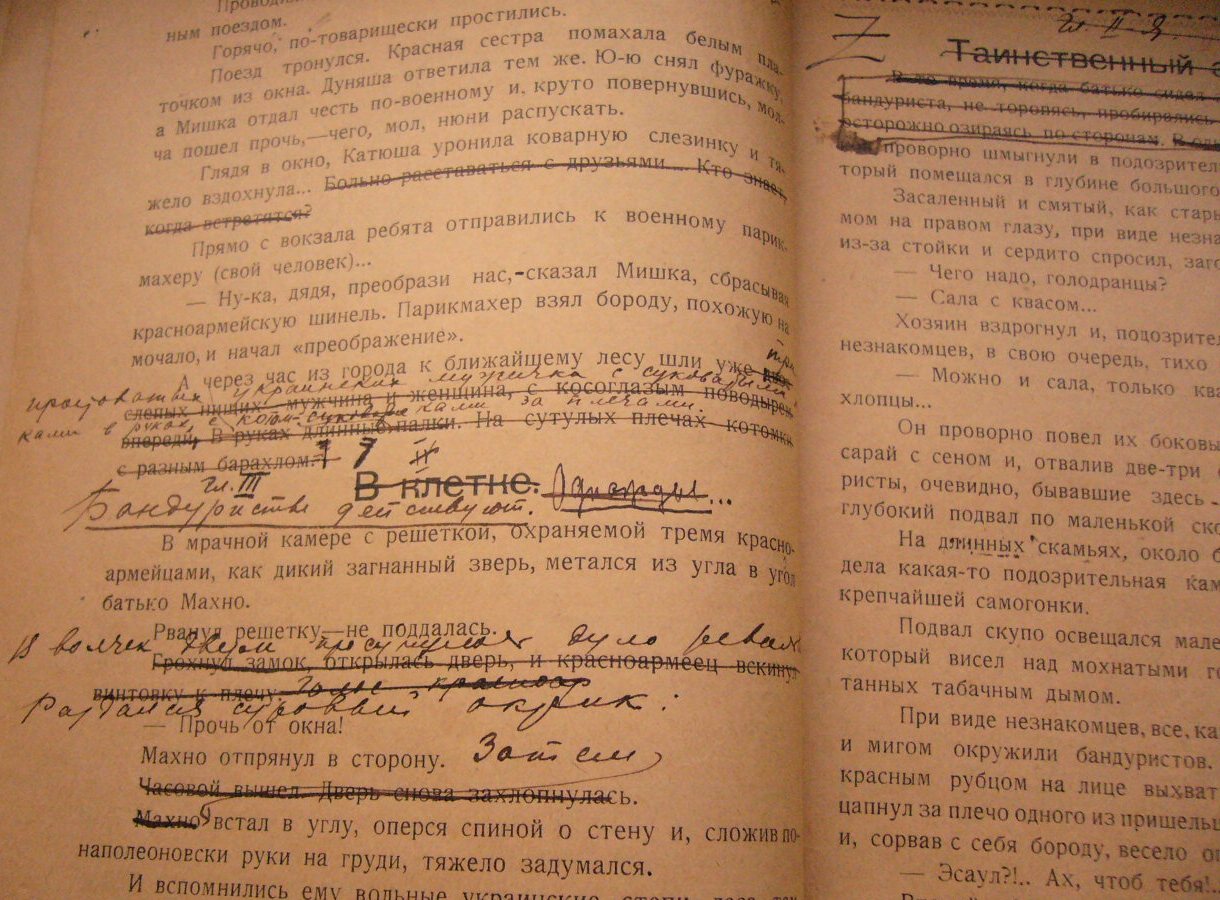 ным поездом.
Горячо, по-товарищески простились.
Поезд тронулся. Красная сестра помахала белым пла-
точком из окна. Дуняша ответила тем же. Ю-ю снял фуражку,
а Мишка отдал честь по-военному и, круто повернувшись, мол-
ча пошел прочь,—чего, мол, нюни распускать.
Глядя в окно, Катюша уронила коварную слезинку и тя-
жело вздохнула... Больно расставаться с друзьями... Кто знает,
когда встретятся?
Прямо с вокзала ребята отправились к военному парик-
махеру (свой человек)...
— Ну-ка, дядя, преобрази нас,-сказал Мишка, сбрасывая
красноармейскую шинель. Парикмахер взял бороду, похожую на
мочало, и начал «преображение».
три
А через час из города к ближайшему лесу шли уже
простоватых украинских мужичка с суковатыми
слепых нищих мужчина и женщина, с косоглазым поводырем
ками в руках, с котомками за плечами.
впереди. В руках длинные палки. На сутулых плечах котомки
с разным барахлом.
гл. III
В клетке. Однажды...
Бандуристы действуют.
В мрачной камере с решеткой, охраняемой тремя красно-
армейцами, как дикий загнанный зверь, метался из угла в угол
батько Махно.
Рванул решетку—не поддалась.
В волчек двери просунулось дуло
Грохнул замок, открылась дверь, и красноармеец вскинул
винтовку к плечу. Голос красноар
Раздался суровый окрик:
— Прочь от окна!
Махно отпрянул в сторону. Затем
Часовой вышел. Дверь снова захлопнулась.
Махно встал в углу, оперся спиной о стену и, сложив по-
наполеоновски руки на груди, тяжело задумался.
И вспомнились ему вольные украинские степи,
гл. II
Z
Таинственный
В то время, когда батько сидел
бандуриста, не торопясь, пробирались
осторожно озираясь по сторонам. В од
проворно шмыгнули в подозрител
торый помещался в глубине большого
Засаленный и смятый, как стары
мом на правом глазу, при виде незна
из-за стойки и сердито спросил, заго
— Чего надо, голодранцы?
— Сала с квасом...
Хозяин вздрогнул и, подозрител
незнакомцев, в свою очередь, тихо
— Можно и сала, только ква
хлопцы...
Он проворно повел их боковы
сарай с сеном и, отвалив две-три
ристы, очевидно, бывавшие здесь
глубокий подвал по маленькой ско
На длинных скамьях, около б
дела какая-то подозрительная кам
крепчайшей самогонки.
Подвал скупо освещался мале
который висел над мохнатыми го
танных табачным дымом.
При виде незнакомцев, все, ка
и мигом окружили бандуристов.
красным рубцом на лице выхват
цапнул за плечо одного из пришельц
и, сорвав с себя бороду, весело
— Эсаул?!.. Ах, чтоб тебя!..